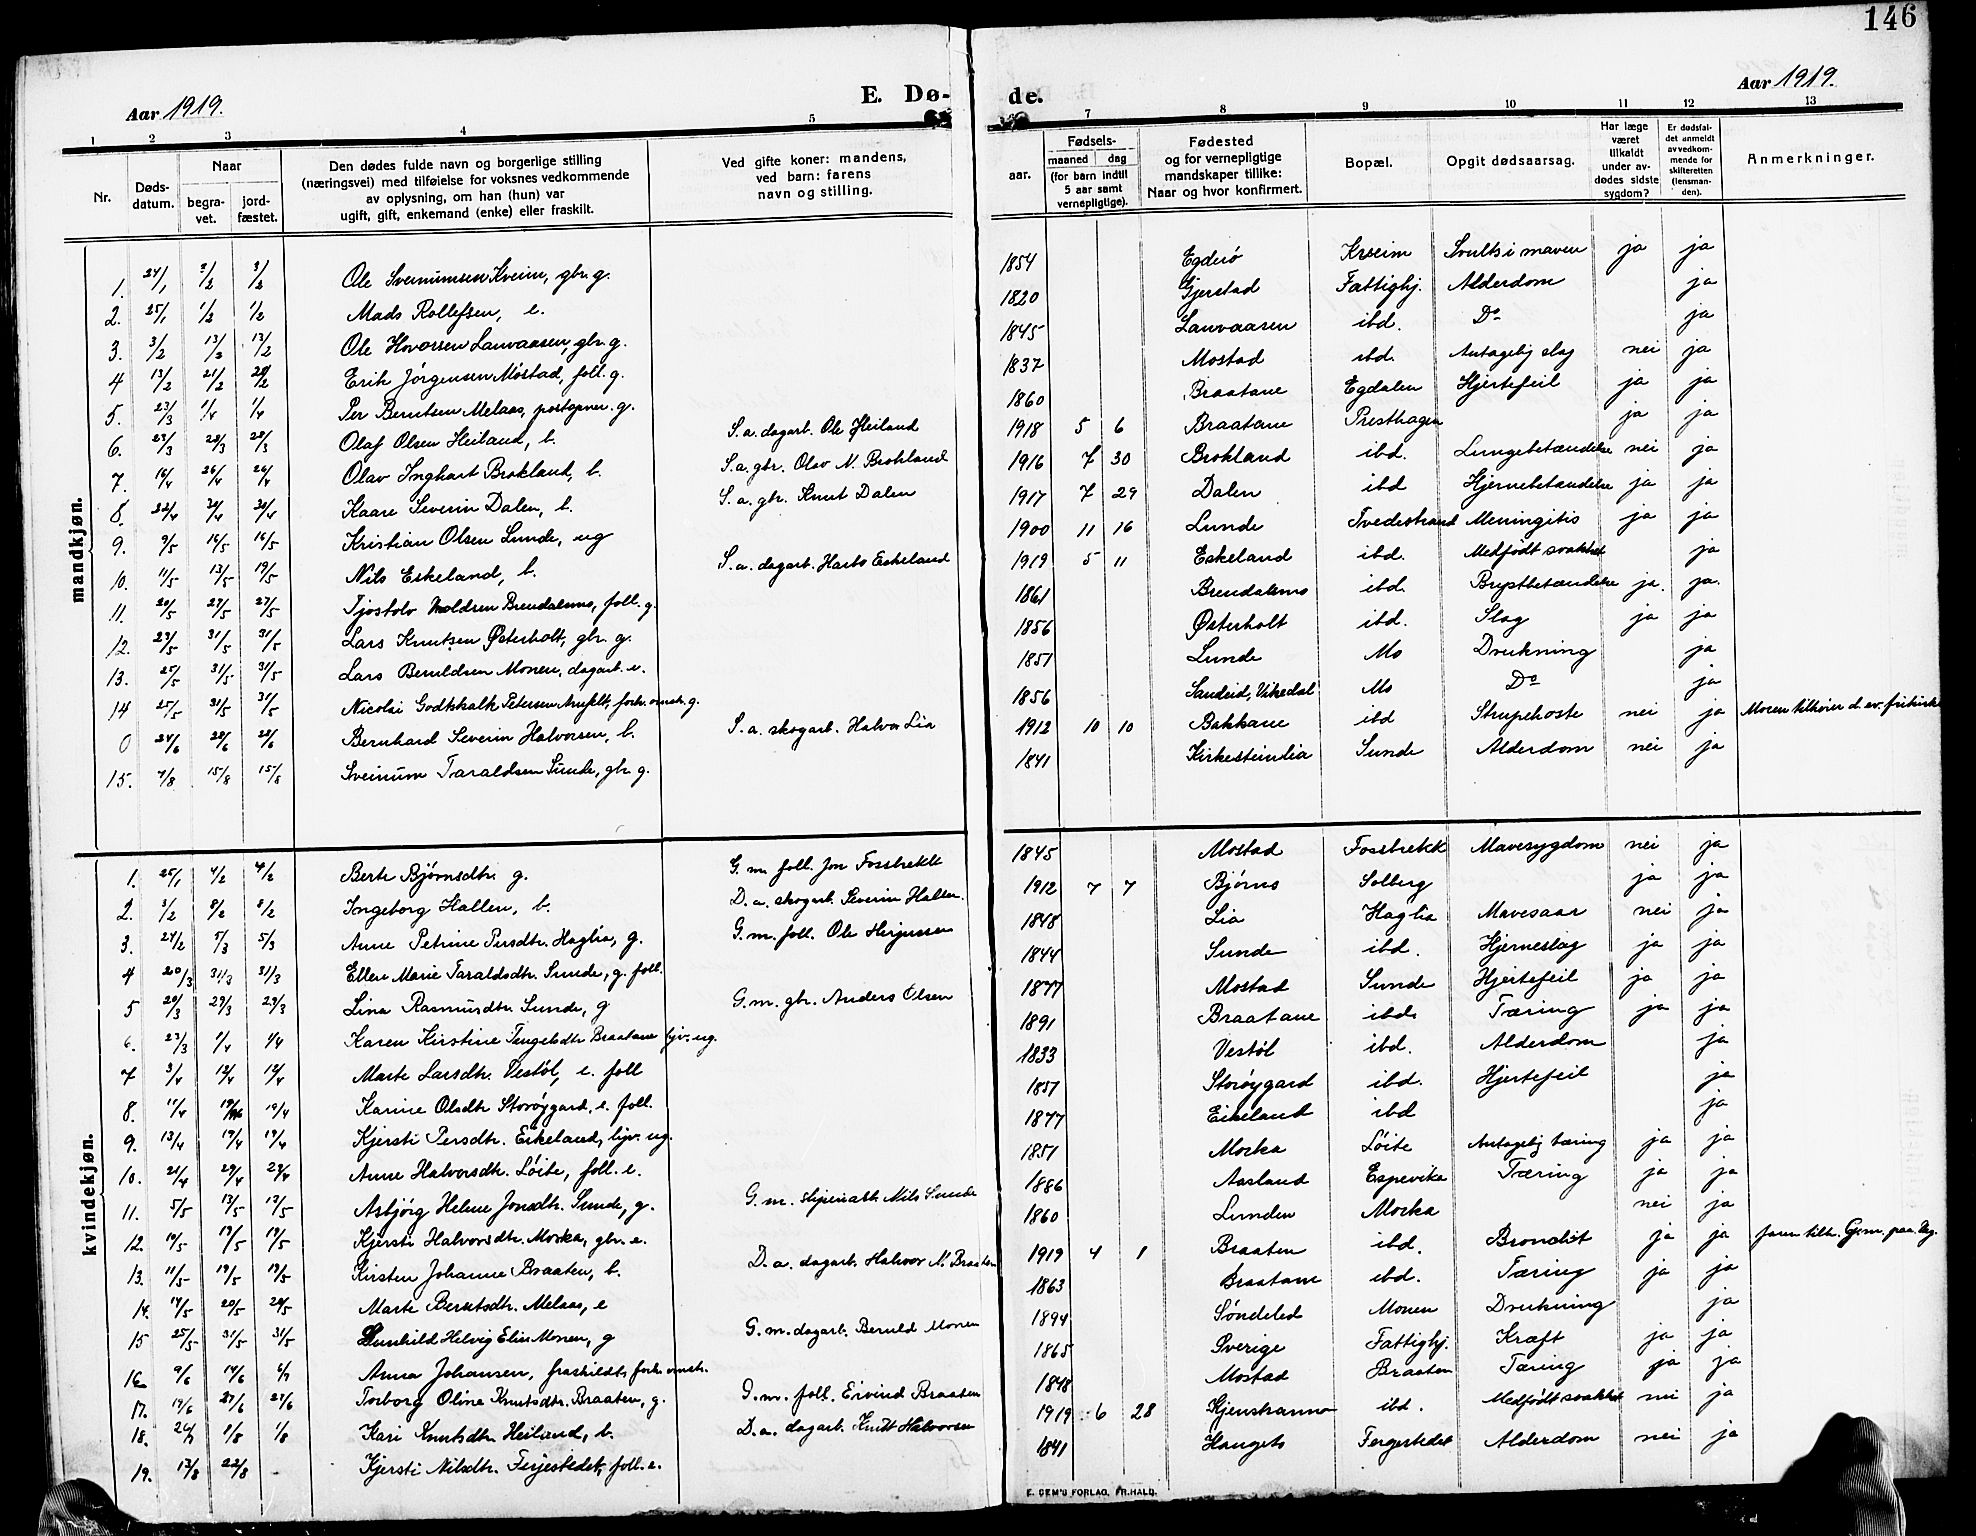 146
Aar 1919.
E. Dø-
de.
Aar 1919.
1 2 3 4 5 7 8 9 10 11 12 13
Nr.
Døds-
datum.
Naar
begra-
vet.
jord-
fæstet.
Den dødes fulde navn og borgerlige stilling
(næringsvei) med tilføielse for voksnes vedkommende
av oplysning, om han (hun) var
ugift, gift, enkemand (enke) eller fraskilt.
Ved gifte koner: mandens,
ved barn: farens
navn og stilling.
Fødsels-
aar.
maaned dag
(for barn indtil
5 aar samt
vernepligtige).
Fødested
og for vernepligtige
mandskaper tillike:
Naar og hvor konfirmert.
Bopæl.
Opgit dødsaarsag.
Har læge
været
tilkaldt
under av-
dødes sidste
sygdom?
Er dødsfal-
det anmeldt
av vedkom-
mende for
skifteretten
(lensman-
den).
Anmerkninger.
mandkjøn.
1. 24/1 2/2 2/2 Ole Sveinumsen Kveim, gbr. g. 1854 Egderö Kveim Svulst i maven ja ja
2. 25/1 1/2 1/2 Mads Rollefsen, e. 1820 Gjerstad Fattighj. Alderdom ja
3. 3/2 13/2 13/2 Ole Hovorsen Lauvaasen, gbr. g. 1845 Lauvaasen ibd. Do ja
4 13/2 21/2 Erik Jörgensen Mostad, foll. g. 1837 Mostad ibd. Antagelig slag nei ja
5. 23/3 1/4 1/4 Per Berntsen Melaas, postopner. g. 1860 Braatane Egdalen Hjertefeil ja ja
6. 23/3 28/3 28/3 Olaf Olsen Heiland, b. S. a. dagarb. Ole Heiland 1918 5 6 Braatane Presthagen ja ja
7. 16/4 26/4 26/4 Olav Inghart Brokland, b. S. a. gbr. Olav N. Brokland 1916 7 30 Brokland ibd. Lungebetændelse nei ja
8. 22/4 30/4 30/4 Kaare Severin Dalen, b. S. a. gbr. Knut Dalen 1917 7 29 Dalen ibd Hjernebetændelse ja ja
9. 9/5 16/5 16/5 Kristian Olsen Lunde, ug 1900 11 16 Lunde Tvedestrand Meningitis ja ja
10. 11/5 13/5 19/5 Nils Eskeland, b. S. a. dagarb. Eskeland 1919 5 11 Eskeland ibd. Medfödt svakhet ja
11. 20/5 27/5 27/5 Tjostolv Brendalsmo, foll. g. 1861 Brendalsmo ibd. Brystbetændelse ja. ja.
12. 23/5 31/5 31/5 Lars Knutsen Østerholt, gbr. g. 1856 Østerholt ibd. Slag ja ja
13. 25/5 31/5 31/5 Lars Beruldsen Monen, dagarb. e. 1851 Lunde Mo Drukning ja
14 25/5 31/5 31/5 Nicolai Godtskalk Petersen g. 1856 Sandeid, Vikedal Mo Do ja
0 24/6 28/6 28/6 Bernhard Severin Halvorsen, b. S. a. skogarb. Halvor Lia 1912 10 10 Bakkane ibd Strupehoste nei ja Moren tilhører d. ev. frikirke
15. 7/8 15/8 15/8 Sveinum Taraldsen Sunde, gbr g. 1841 Kirkesteinlia Sunde Alderdom nei ja
kvindekjøn.
1. 25/1 4/2 4/2 Berte Bjørnsdtr. g. G. m. foll. Jon Fosstvekk 1845 Mostad Fosstvekk Mavesygdom nei ja
2. 3/2 8/2 8/2 Ingeborg Hallen, b. D. a. skogarb. Severin Hallen. 1912 7 7 Bjórns Solberg ja ja
3. 24/2 5/3 5/3 Anne Petrine Persdtr. Haglia, g. G. m. foll. Ole 1848 Lia Haglia Mavesaar nei ja
4 20/3 31/3 31/3 Ellen Marie Taraldsdtr. Sunde, g. foll. 1844 Sunde ibd. Hjerneslag ja ja
5 20/3 29/3 29/3 Lina Rasmusdtr. Sunde, g G. m. gbr. Anders Olsen 1877 Mostad Sunde Hjertefeil ja ja
6. 23/3 1/4 1/4 Karen Kirstine Braatane tjv. ug. 1891 Braatane ibd. Tæring ja ja
7 3/4 12/4 12/4 Marte Larsdtr. Vestöl, e. foll 1833 Vestöl ibd. Alderdom ja
8. 11/4 19/4 19/4 Karine Olsdtr Storöygard, e. foll. 1857 Storöygard ibd. Hjertefeil ja
9. 13/4 19/4 19/4 Kjersti Persdtr. Eikeland, tjv. ug. 1877 Eikeland ibd ja
10. 21/4 29/4 29/4 Anne Halvorsdtr. Löite, foll. e. 1851 Morka Löite Antagelig tæring ja ja
11. 5/5 13/5 13/5 Asbjörg Helene Jonsdtr. Sunde, g. G. m. Nils Sunde 1886 Aasland Espevika Tæring ja ja
12. 10/5 19/5 19/5 Kjersti Halvorsdtr. Morka, gbr. e. 1860 Lunden Morka nei ja
13. 11/5 19/5 19/5 Kirsten Johanne Braaten, b. D. a. dagarb. Halvor N. Braaten 1919 4 1 Braaten ibd. Bronchit ja ja faren tilh.
14. 14/5 20/5 20/5 Marte Berntsdtr. Melaas, e 1863 Braatane ibd. Tæring ja ja
15 25/5 31/5 31/5 Gunhild Helvig Elin Monen, g G. m. dagarb. Beruld Monen 1894 Söndeled Monen Drukning ja
16 9/6 14/6 Anna Johansen, fraskildt, 1865 Sverige Fattighj. Kræft ja ja
17. 19/6 27/6 27/6 Torborg Oline Knutsdtr. Braaten, g. G. m. foll. Eivind Braaten 1848 Mostad Braaten Tæring ja ja
18. 1/8 1/8 Kari Knutsdtr Heiland, b. D. a. dagarb. Knut Halvorsen 1919 6 28 ibd. Medfødt svakhet nei ja
19. 13/8 22/8 - Kjersti Nilsdtr. Ferjestedet, foll. e. 1841 Haugets Fergestedet Alderdom nei ja
E. SEM'S FORLAG, FR.HALD.